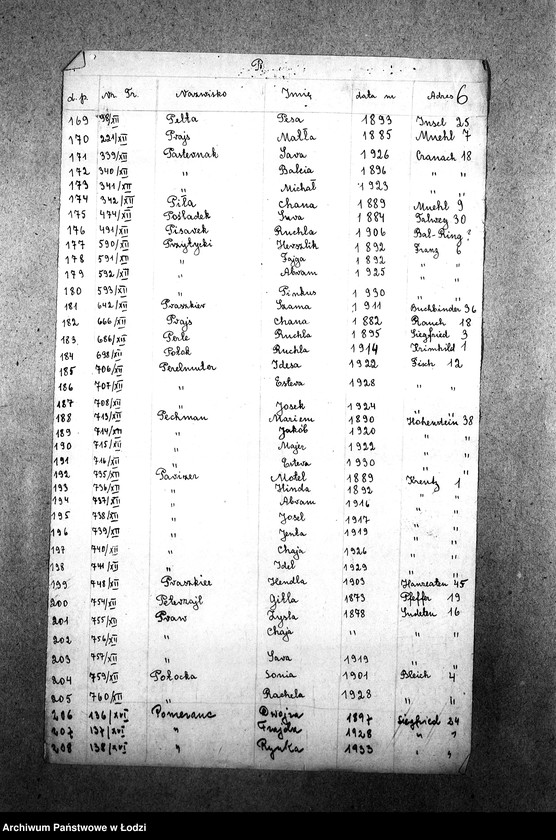 P.
d. p. Nr Tr. Nazwisko Imię data ur Adres 6
169 98/XII Pełta Pesa 1893 Insel 25
170 221/XII Prajs Małła 1885 Muehl 7
171 339/XII Pasternak Sara 1926 Cranach 18
172 340/XII " Balcia 1896 " "
173 341/XII " Michał 1923 " "
174 342/XII Piła Chana 1889 Muehl 9
175 474/XII Pośladek Sura 1884 Talweg 30
176 491/XII Pisarek Ruchla 1906 Bal-Ring ?
177 590/XII Przytycki Herszlik 1892 Franz 6
178 591/XII " Fajga 1892 " "
179 592/XII " Abram 1925 " "
180 593/XII " Pinkus 1930 " "
181 642/XII Praszkier Szama 1911 Buchbinder 36
182 666/XII Prajs Chana 1882 Rauch 18
183 686/XII Perle Ruchla 1895 Siegfried 3
184 698/XII Polak Ruchla 1914 Krimhild 1
185 706/XII Perelmuter Idesa 1922 Fisch 12
186 707/XII " Estera 1928 " "
187 708/XII " Josek 1924 " "
188 713/XII Pechman Mariem 1890 Hohenstein 38
189 714/XII " Jakób 1920 " "
190 715/XII " Majer 1922 " "
191 716/XII " Estera 1930 " "
192 735/XII Parizer Motel 1889 Kreutz 1
193 736/XII " Hinda 1892 " "
194 737/XII " Abram 1916 " "
195 738/XII " Josel 1917 " "
196 739/XII " Jenta 1919 " "
197 740/XII " Chaja 1926 " "
198 741/XII " Idel 1929 " "
199 748/XII Praszkier Hendla 1903 Hanseaten 45
200 754/XII Peterzajl Gitla 1873 Pfeffer 19
201 755/XII Praw Zysla 1878 Sudeten 16
202 756/XII " Chaja " " "
203 757/XII " Sara 1919 " "
204 759/XII Połocka Sonia 1901 Bleich 4
205 760/XII " Rachela 1928 " "
206 136/XVI Pomeranc Dwojra 1897 Siegfried 24
207 137/XVI " Frajda 1928 " "
208 138/XVI " Rywka 1933 " "
Archiwum Państwowe w Łodzi